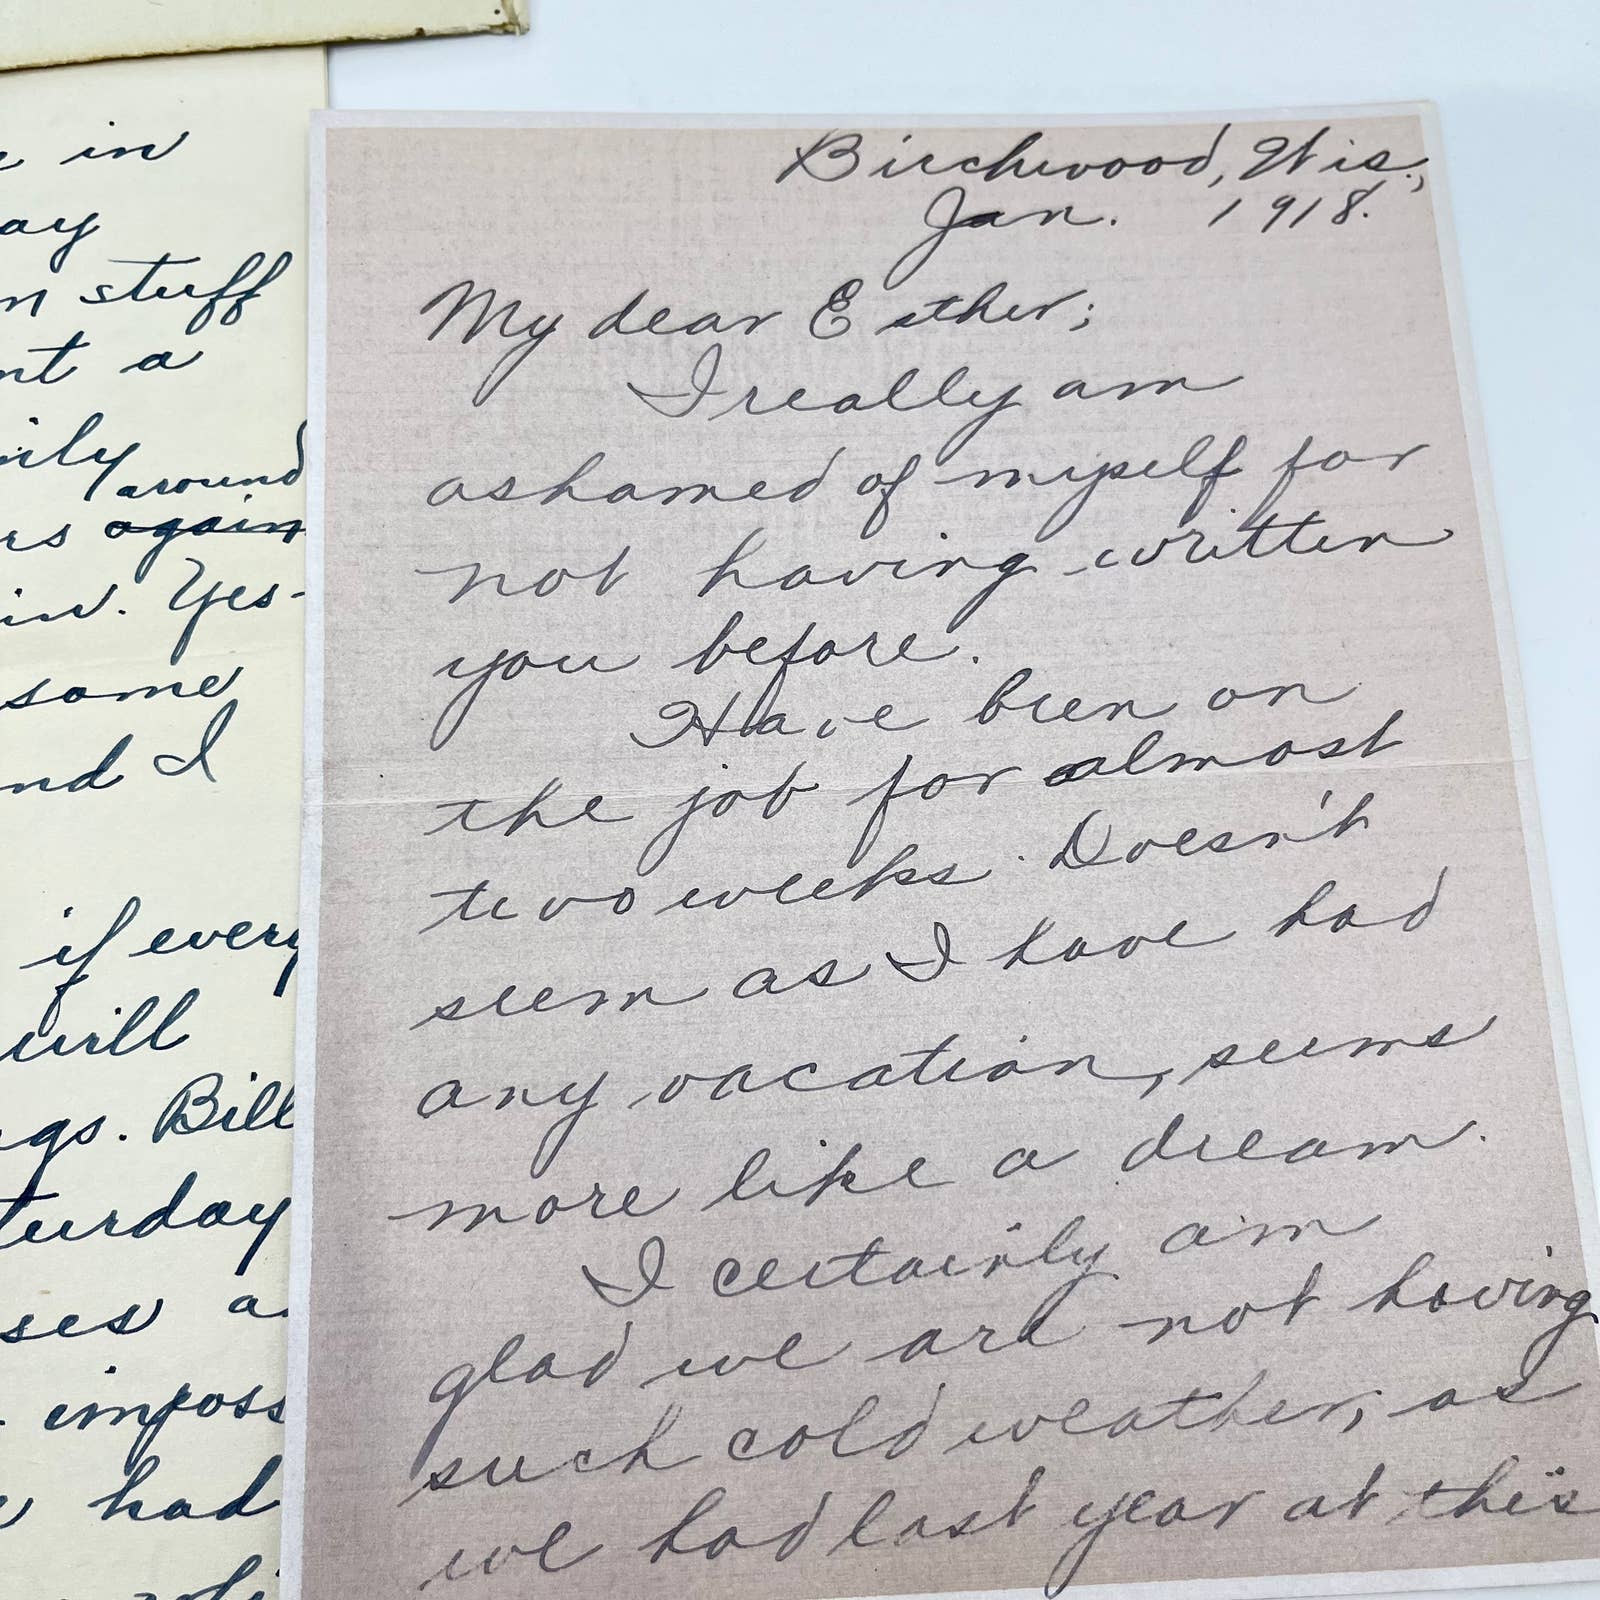 in
ay
n stuff
nt a
ily
around
rs again
in. Yes-
some
nd I
if every
will
gs. Bill
turday
ses a
imposs
had
Birchwood, Wis.,
Jan. 1918.
My dear Esther;
I really am
ashamed of myself for
not having written
you before.
Have been on
the job for almost
two weeks. Doesn't
seem as I have had
any vacation, seems
more like a dream.
I certainly am
glad we are not having
such cold weather, as
we had last year at this